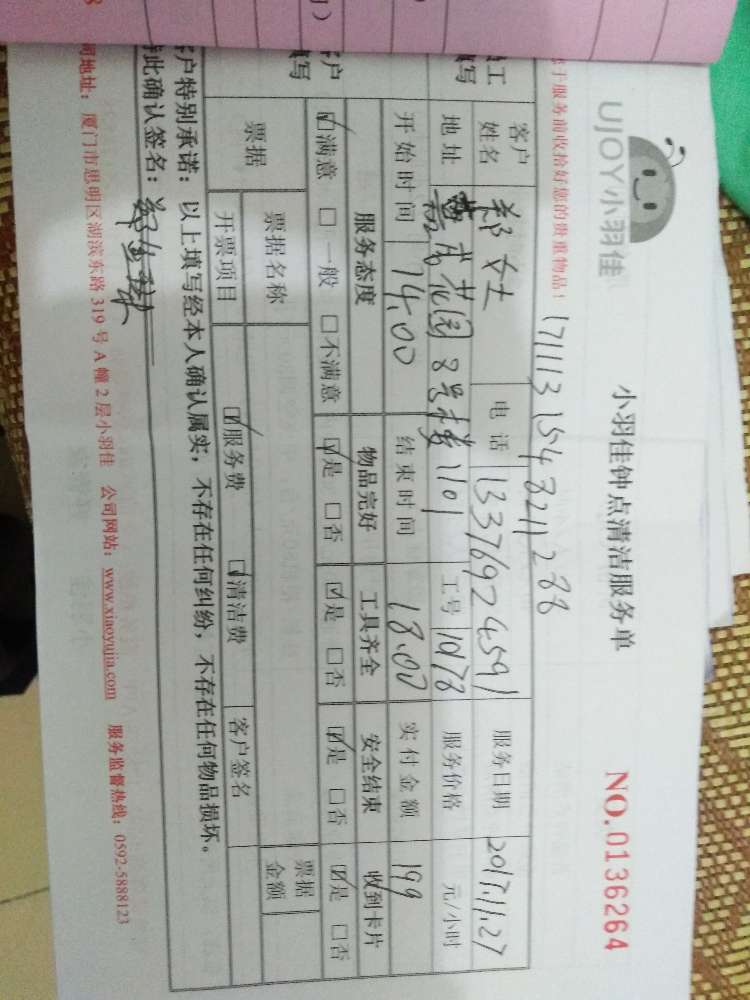 UJOY小羽佳
小羽佳钟点清洁服务单
NO.0136264
于服务前收拾好您的贵重物品！
171113154821128
客户姓名 郑女士 电话 13376924591 服务日期 2017.11.27
地址 花园8号楼1101 工号 1078 服务价格 元/小时
开始时间 14.00 结束时间 18.00 实付金额 199
服务态度 物品完好 工具齐全 安全结束 收到卡片
☑满意 □一般 □不满意 ☑是 □否 ☑是 □否 ☑是 □否 ☑是 □否
票据 票据名称 票据金额
开票项目 ☑服务费 ☑清洁费 客户签名
户特别承诺：以上填写经本人确认属实，不存在任何纠纷，不存在任何物品损坏。
此确认签名：
地址：厦门市思明区湖滨东路319号A幢2层小羽佳 公司网站：www.xiaoyujia.com 服务监督热线：0592-5888123